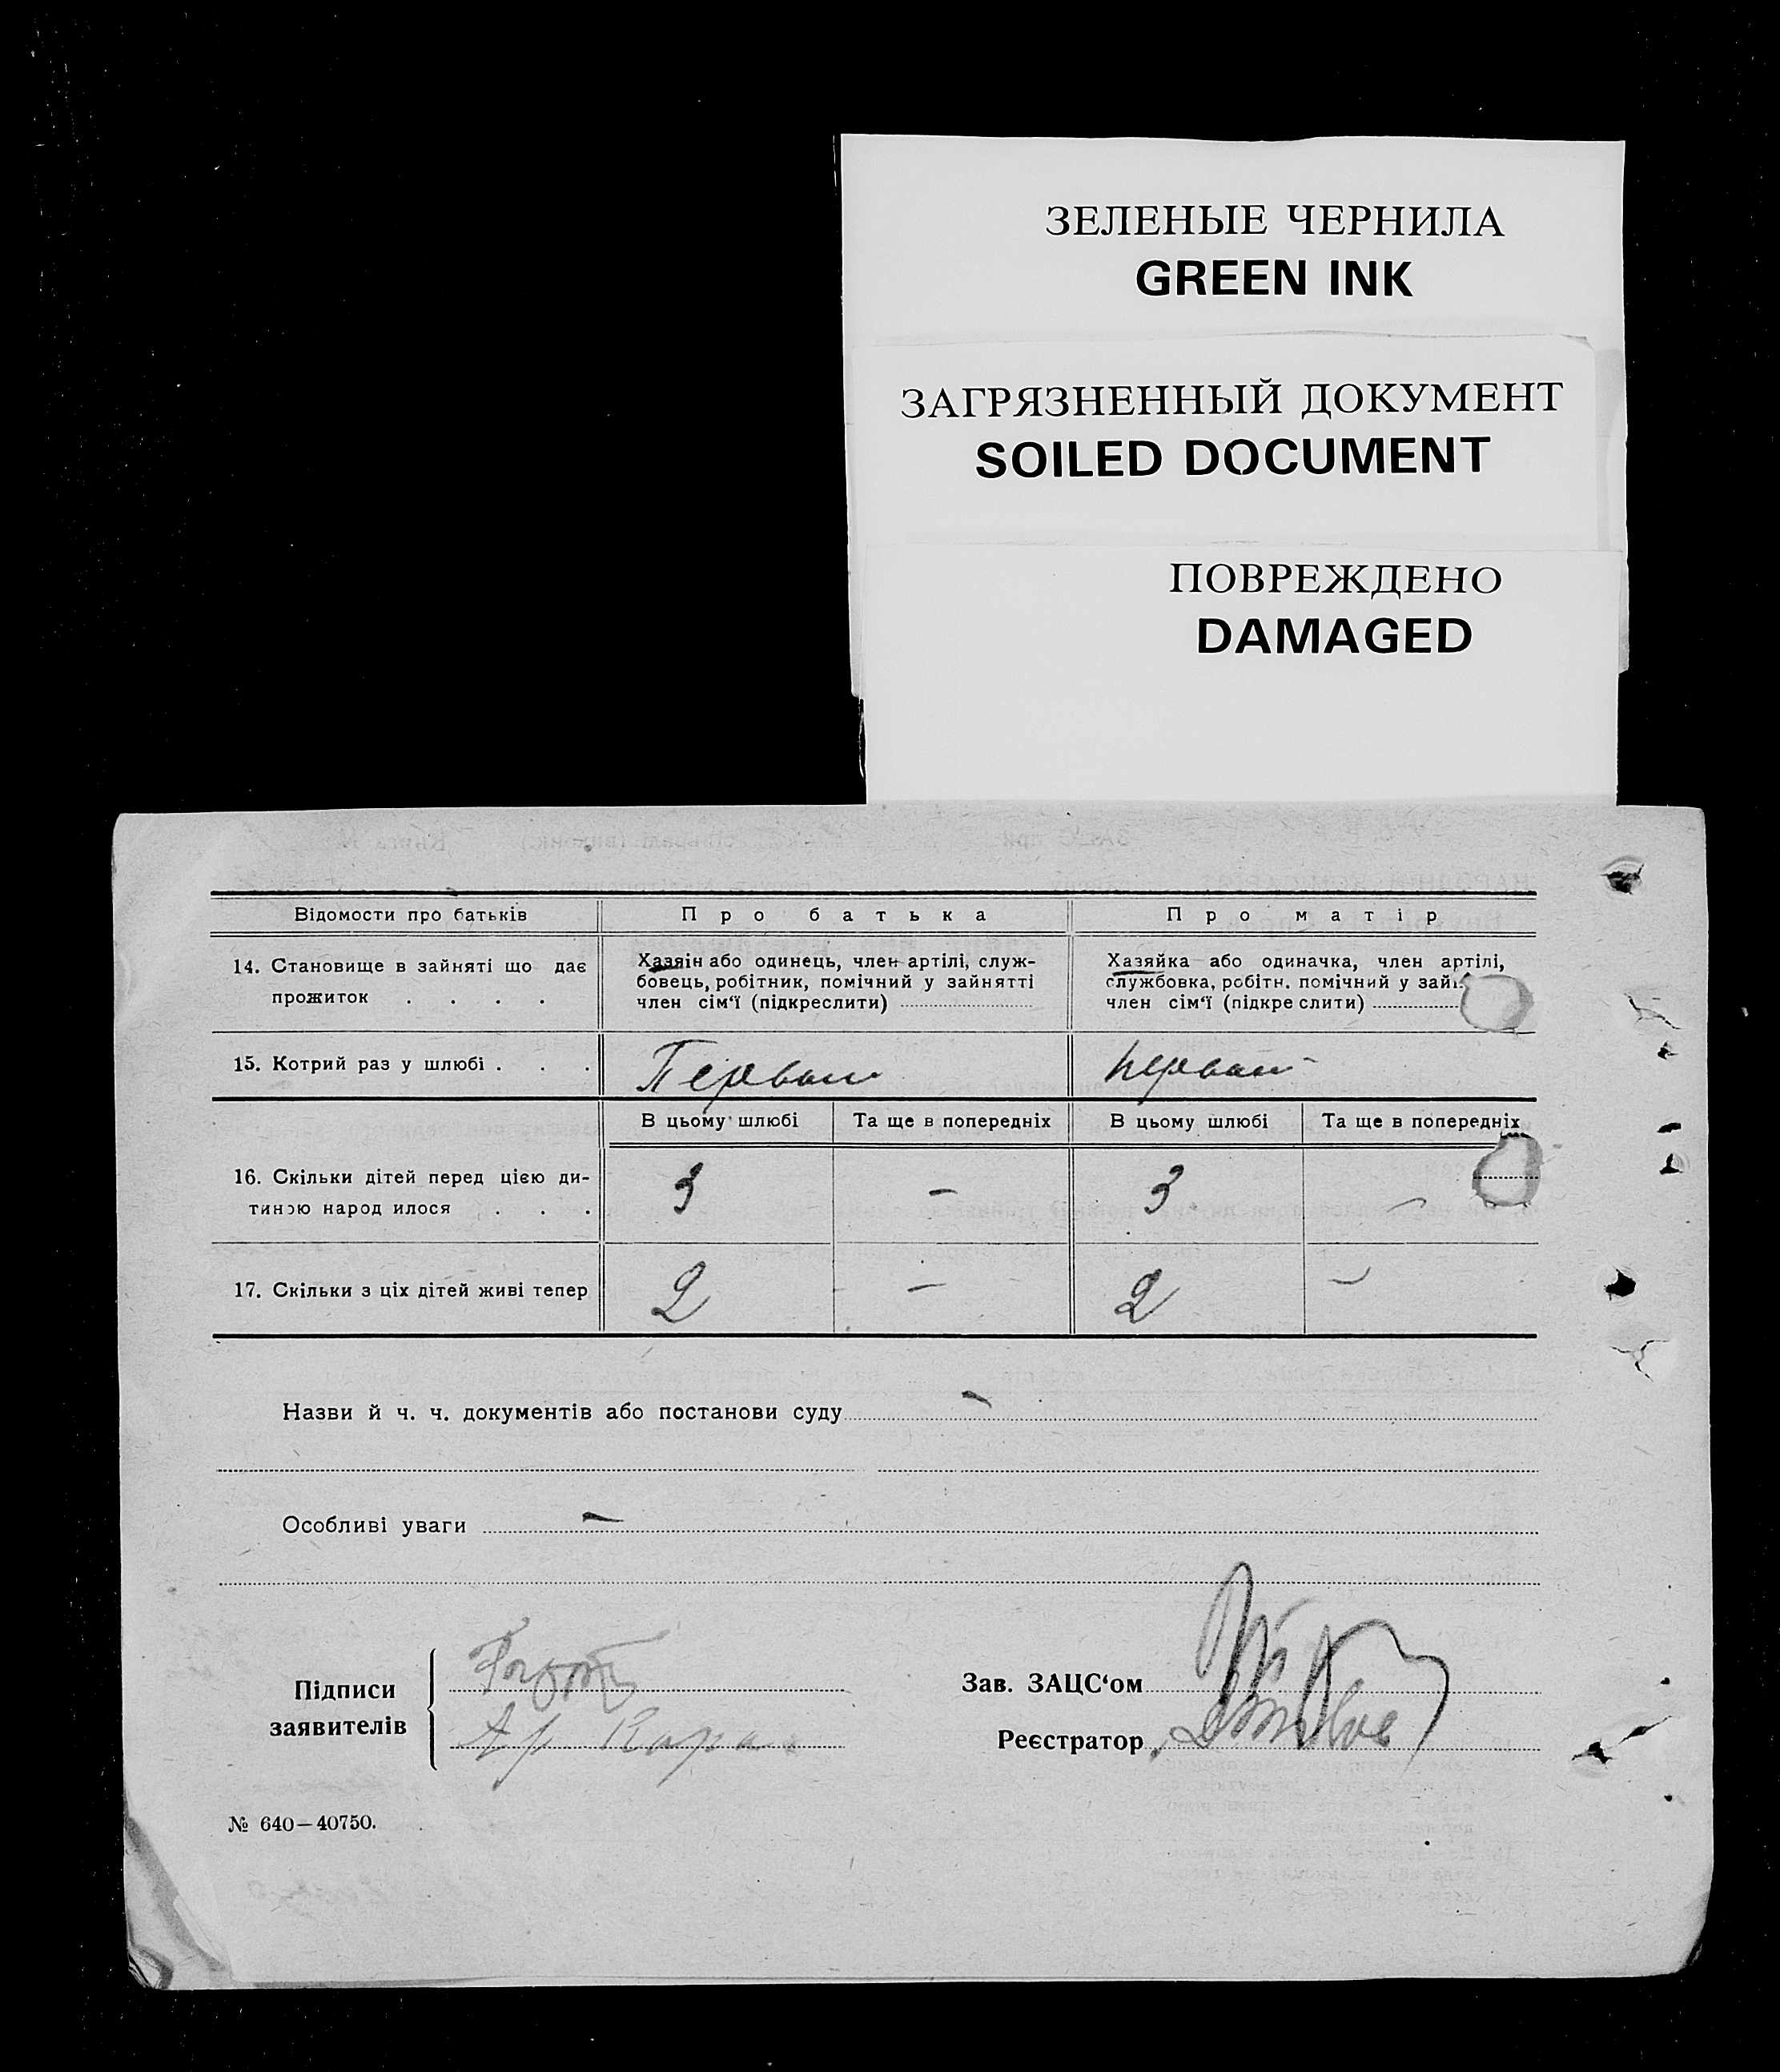 ЗЕЛЕНЫЕ ЧЕРНИЛА
GREEN INK
ЗАГРЯЗНЕННЫЙ ДОКУМЕНТ
SOILED DOCUMENT
ПОВРЕЖДЕНО
DAMAGED
Відомости про батьків
Про батька
Про матір
14. Становище в зайняті що дає
прожиток . . . .
Хазяїн або одинець, член артілі, служ-
бовець, робітник, помічний у зайнятті
член сім‘ї (підкреслити)
Хазяйка або одиначка, член артілі,
службовка, робітн. помічний у
член сім‘ї (підкреслити)
15. Котрий раз у шлюбі . . .
Первый
первый
В цьому шлюбі
Та ще в попередніх
В цьому шлюбі
Та ще в попередніх
16. Скільки дітей перед цією ди-
тиною народилося . . .
3
-
3
-
17. Скільки з ціх дітей живі тепер
2
-
2
-
Назви й ч. ч. документів або постанови суду -
Особливі уваги -
Підписи
заявителів
Зав. ЗАЦС‘ом
Реєстратор
№ 640—40750.